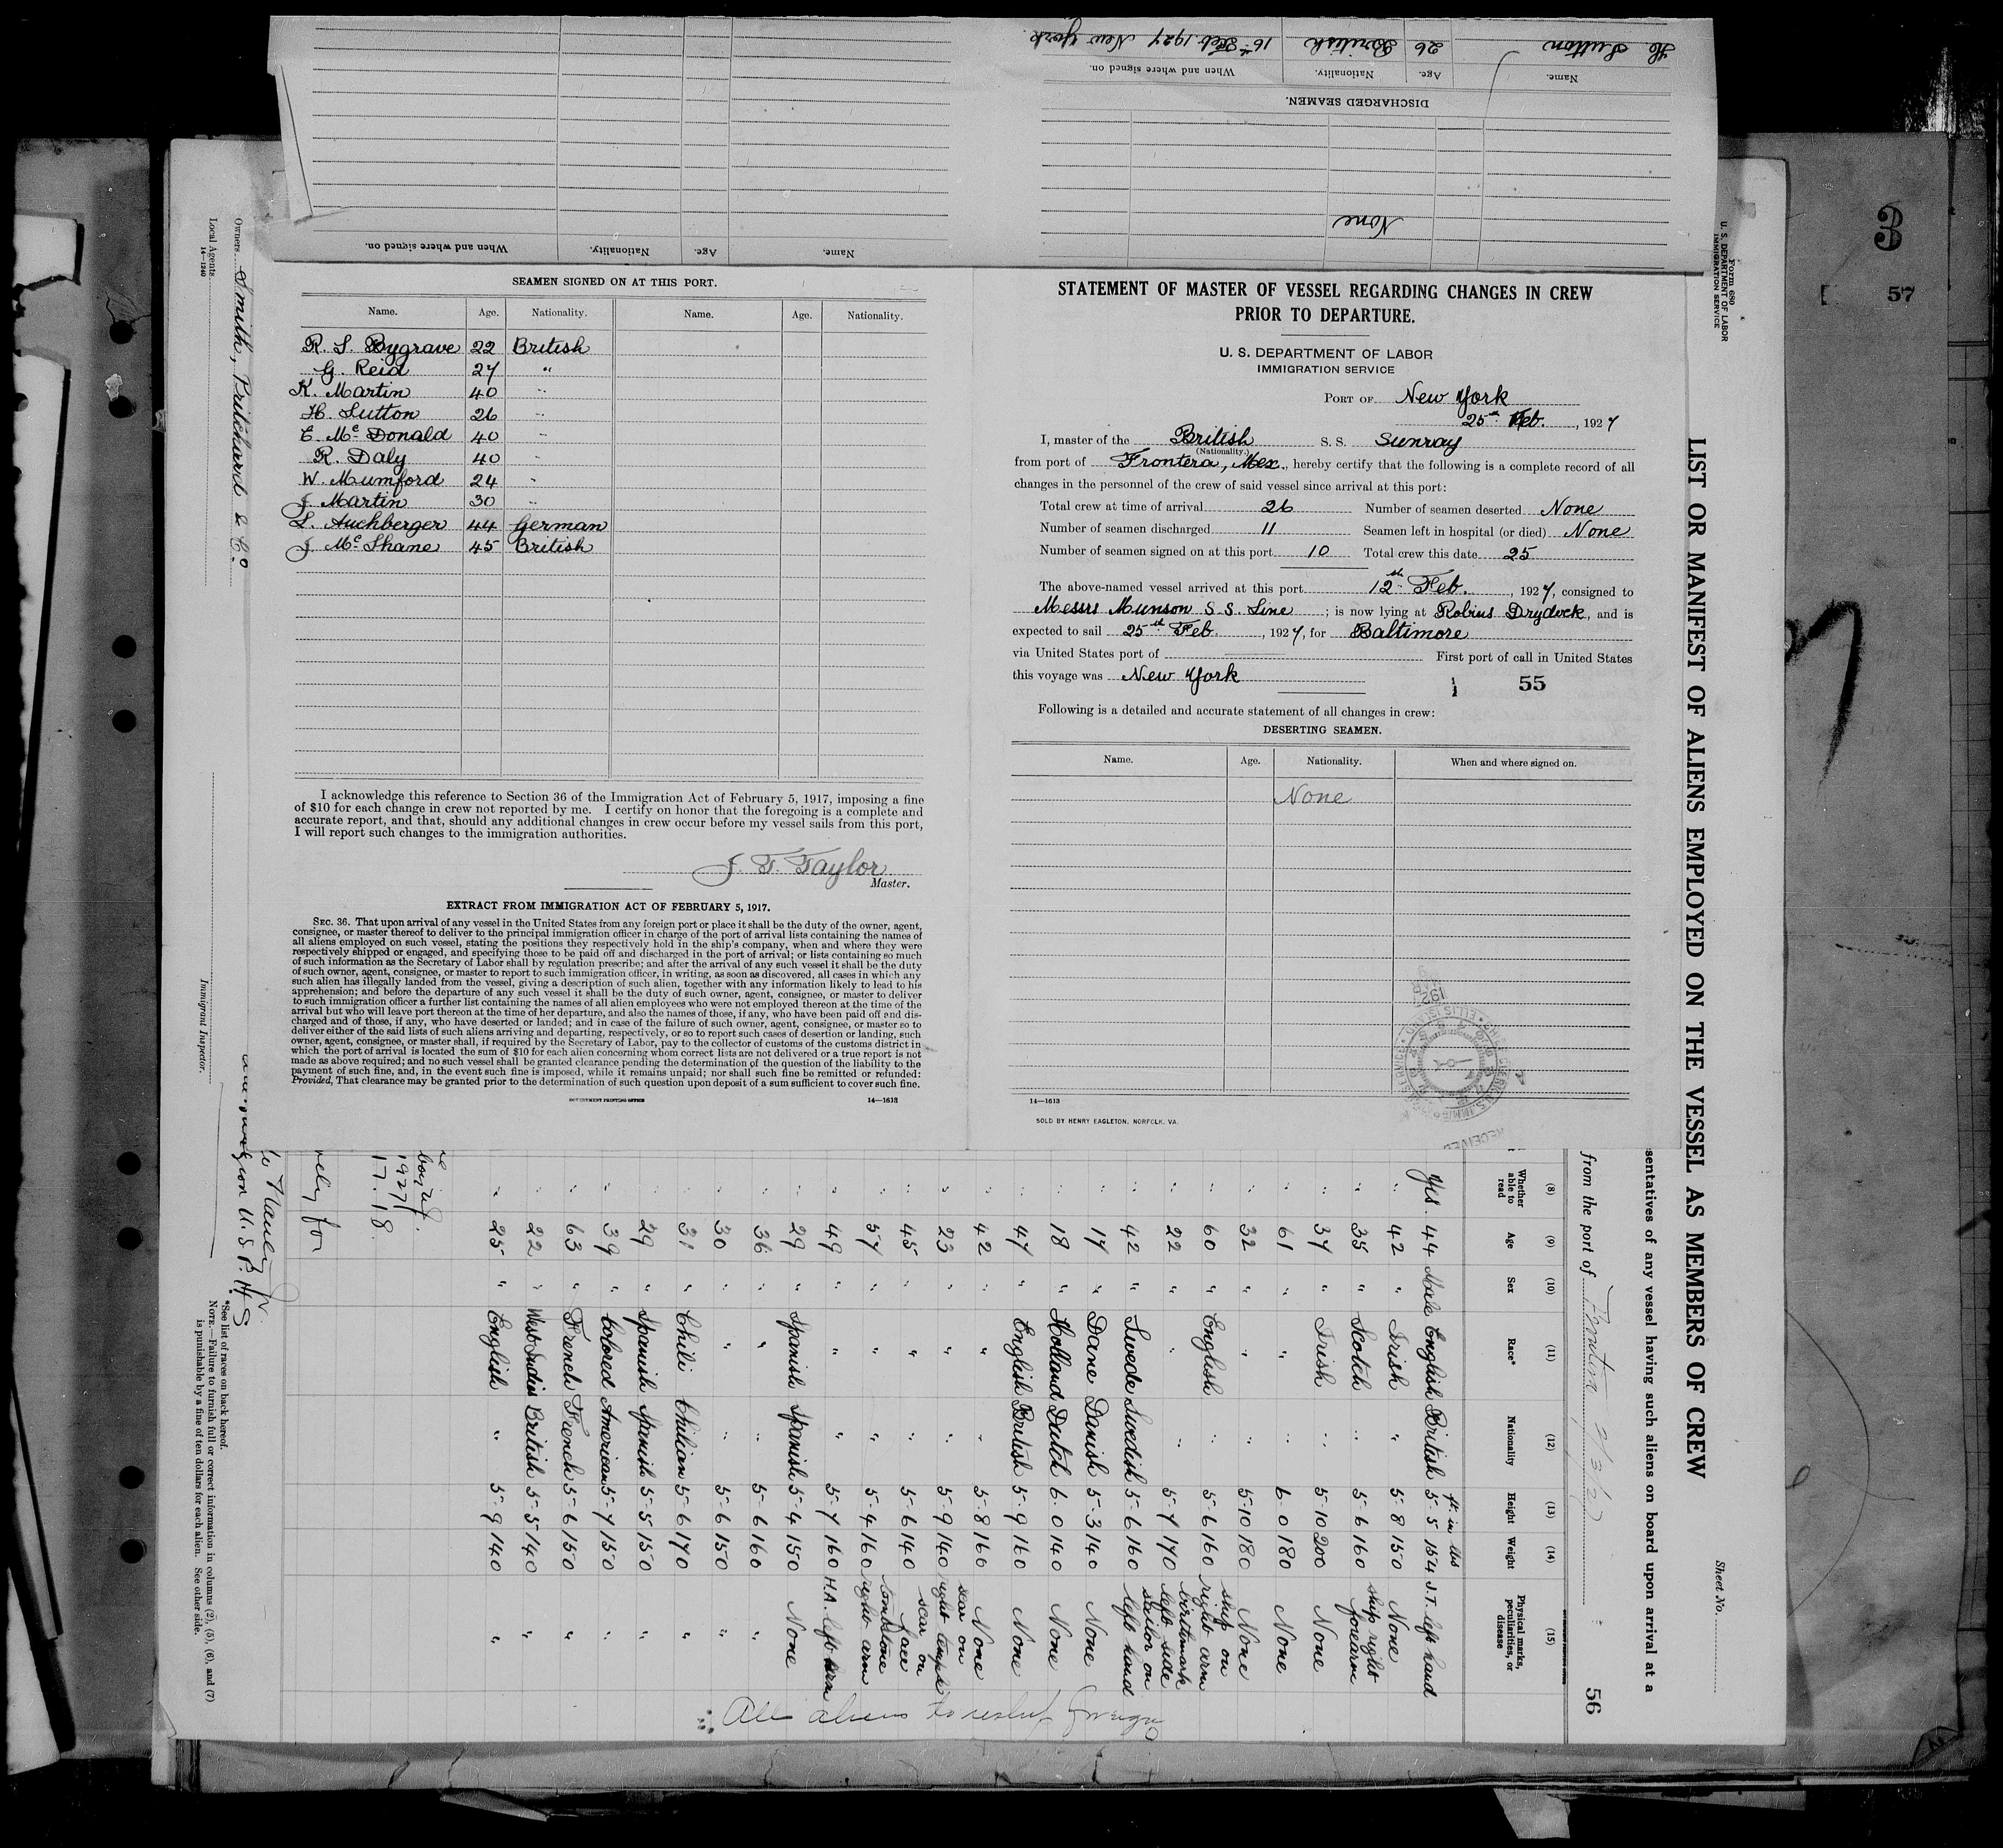 H. Sutton 26 British 16th Feb. 1927 New York
Name. Age. Nationality. When and where signed on.
DISCHARGED SEAMEN.
None
Name. Age. Nationality. When and where signed on.
SEAMEN SIGNED ON AT THIS PORT.
Name. Age. Nationality. Name. Age. Nationality.
R. S. Bygrave 22 British
G. Reid 27 "
K. Martin 40 "
H. Sutton 26 "
E. Mc Donald 40 "
R. Daly 40 "
W. Mumford 24 "
J. Martin 30 "
L. Auchberger 44 German
J. Mc Shane 45 British
I acknowledge this reference to Section 36 of the Immigration Act of February 5, 1917, imposing a fine
of $10 for each change in crew not reported by me. I certify on honor that the foregoing is a complete and
accurate report, and that, should any additional changes in crew occur before my vessel sails from this port,
I will report such changes to the immigration authorities.
J. F. Taylor
Master.
EXTRACT FROM IMMIGRATION ACT OF FEBRUARY 5, 1917.
SEC. 36. That upon arrival of any vessel in the United States from any foreign port or place it shall be the duty of the owner, agent,
consignee, or master thereof to deliver to the principal immigration officer in charge of the port of arrival lists containing the names of
all aliens employed on such vessel, stating the positions they respectively hold in the ship's company, when and where they were
respectively shipped or engaged, and specifying those to be paid off and discharged in the port of arrival; or lists containing so much
of such information as the Secretary of Labor shall by regulation prescribe; and after the arrival of any such vessel it shall be the duty
of such owner, agent, consignee, or master to report to such immigration officer, in writing, as soon as discovered, all cases in which any
such alien has illegally landed from the vessel, giving a description of such alien, together with any information likely to lead to his
apprehension; and before the departure of any such vessel it shall be the duty of such owner, agent, consignee, or master to deliver
to such immigration officer a further list containing the names of all alien employees who were not employed thereon at the time of the
arrival but who will leave port thereon at the time of her departure, and also the names of those, if any, who have been paid off and dis-
charged and of those, if any, who have deserted or landed; and in case of the failure of such owner, agent, consignee, or master so to
deliver either of the said lists of such aliens arriving and departing, respectively, or so to report such cases of desertion or landing, such
owner, agent, consignee, or master shall, if required by the Secretary of Labor, pay to the collector of customs of the customs district in
which the port of arrival is located the sum of $10 for each alien concerning whom correct lists are not delivered or a true report is not
made as above required; and no such vessel shall be granted clearance pending the determination of the question of the liability to the
payment of such fine, and, in the event such fine is imposed, while it remains unpaid; nor shall such fine be remitted or refunded:
Provided, That clearance may be granted prior to the determination of such question upon deposit of a sum sufficient to cover such fine.
GOVERNMENT PRINTING OFFICE 14—1613
STATEMENT OF MASTER OF VESSEL REGARDING CHANGES IN CREW
PRIOR TO DEPARTURE.
U. S. DEPARTMENT OF LABOR
IMMIGRATION SERVICE
PORT OF New York
25th Feb., 1927
I, master of the British S. S. Sunray
(Nationality.)
from port of Frontera, Mex., hereby certify that the following is a complete record of all
changes in the personnel of the crew of said vessel since arrival at this port:
Total crew at time of arrival 26 Number of seamen deserted None
Number of seamen discharged 11 Seamen left in hospital (or died) None
Number of seamen signed on at this port 10 Total crew this date 25
The above-named vessel arrived at this port 12th Feb., 1927, consigned to
Messrs Munson S.S. Line; is now lying at Robins Drydock, and is
expected to sail 25th Feb, 1927, for Baltimore
via United States port of First port of call in United States
this voyage was New York
55
Following is a detailed and accurate statement of all changes in crew:
DESERTING SEAMEN.
Name. Age. Nationality. When and where signed on.
None
14—1613
SOLD BY HENRY EAGLETON, NORFOLK, VA.
RECEIVED
3
57
Form 680
U. S. DEPARTMENT OF LABOR
IMMIGRATION SERVICE
Sheet No.
LIST OR MANIFEST OF ALIENS EMPLOYED ON THE VESSEL AS MEMBERS OF CREW
sentatives of any vessel having such aliens on board upon arrival at a
from the port of
56
(8) (9) (10) (11) (12) (13) (14) (15)
Whether able to read Age Sex Race* Nationality Height Weight Physical marks, peculiarities, or disease
ft. in lbs
Yes. 44 Male English British 5-5 154 J.T. left hand
" 42 " Irish " 5-8 150 None
" 35 " Scotch " 5-6 160 ship right forearm
" 37 " Irish " 5-10 200 None
" 61 " " " 6-0 180 None
" 32 " " " 5-10 180 None
" 60 " English " 5-6 160 ship on right arm
" 22 " " " 5-7 170 birthmark left side
" 42 " Swede Swedish 5-6 160 sailor on left hand
" 17 " Dane Danish 5-3 140 None
" 18 " Holland Dutch 6-0 140 None
" 47 " English British 5-9 160 None
" 42 " " " 5-8 160 None
" 23 " " " 5-9 140 scar on right temple
" 45 " " " 5-6 140 scar on face
" 57 " " " 5-4 160 tombstone right arm
" 49 " " " 5-7 160 H.A. left arm
" 29 " Spanish Spanish 5-4 150 None
" 36 " " " 5-6 160 "
" 30 " " " 5-6 150 "
" 31 " Chili Chilian 5-6 170 "
" 29 " Spanish Spanish 5-5 150 "
" 39 " Colored American 5-7 150 "
" 63 " French French 5-6 150 "
" 22 " West Indies British 5-5 140 "
" 25 " English " 5-9 140 "
All aliens to reship foreign
1927
17.18.
rely for
U.S.P.H.S
Owners Smith, Pritchard & Co
Local Agents
14—1240
Immigrant Inspector.
*See list of races on back hereof.
NOTE.—Failure to furnish full or correct information in columns (2), (5), (6), and (7)
is punishable by a fine of ten dollars for each alien. See other side.